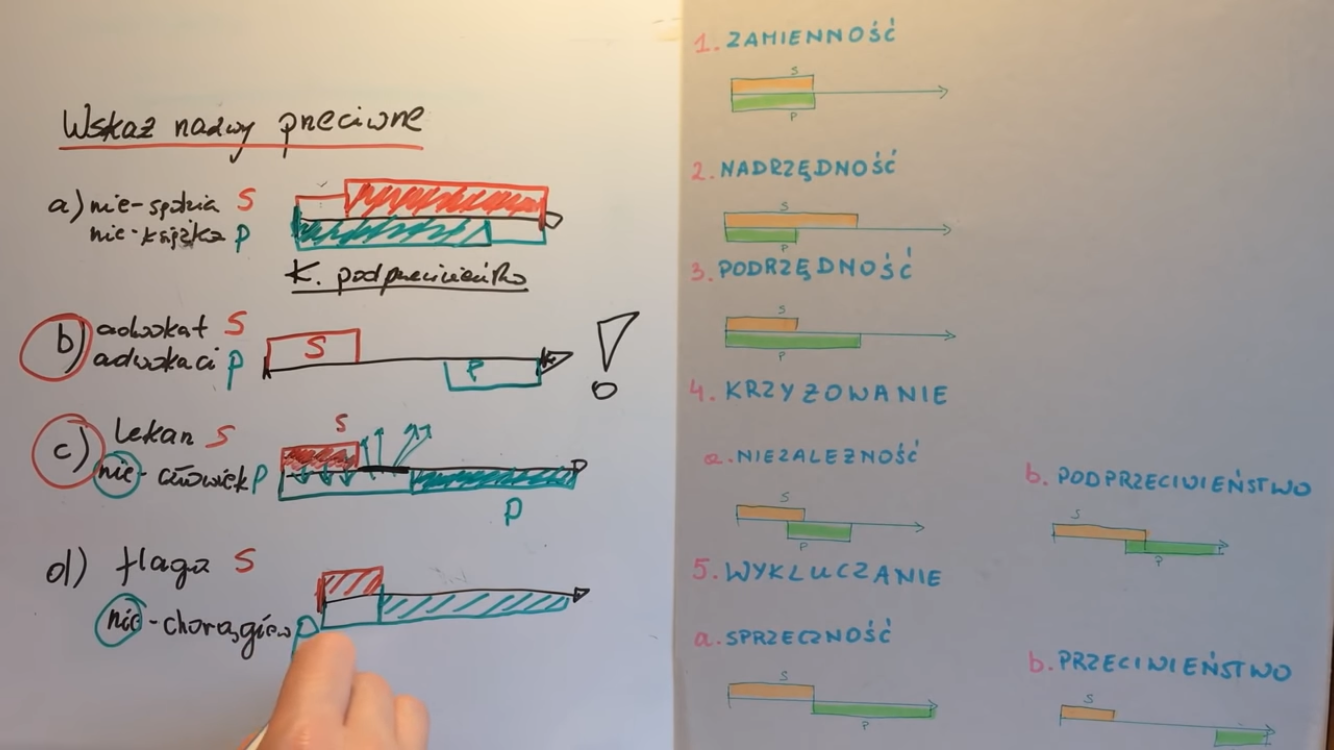 Wskaż nazwy przeciwne
a) nie-spódnica S
nie-książka P
K. podprzeciwieństwo
b) adwokat S
adwokaci P
S
P
!
c) lekarz S
nie-człowiek P
S
P
d) flaga S
nie-chorągiew P
1. ZAMIENNOŚĆ
S
P
2. NADRZĘDNOŚĆ
S
P
3. PODRZĘDNOŚĆ
S
P
4. KRZYŻOWANIE
a. NIEZALEŻNOŚĆ
S
P
b. PODPRZECIWIEŃSTWO
S
P
5. WYKLUCZANIE
a. SPRZECZNOŚĆ
S
P
b. PRZECIWIEŃSTWO
S